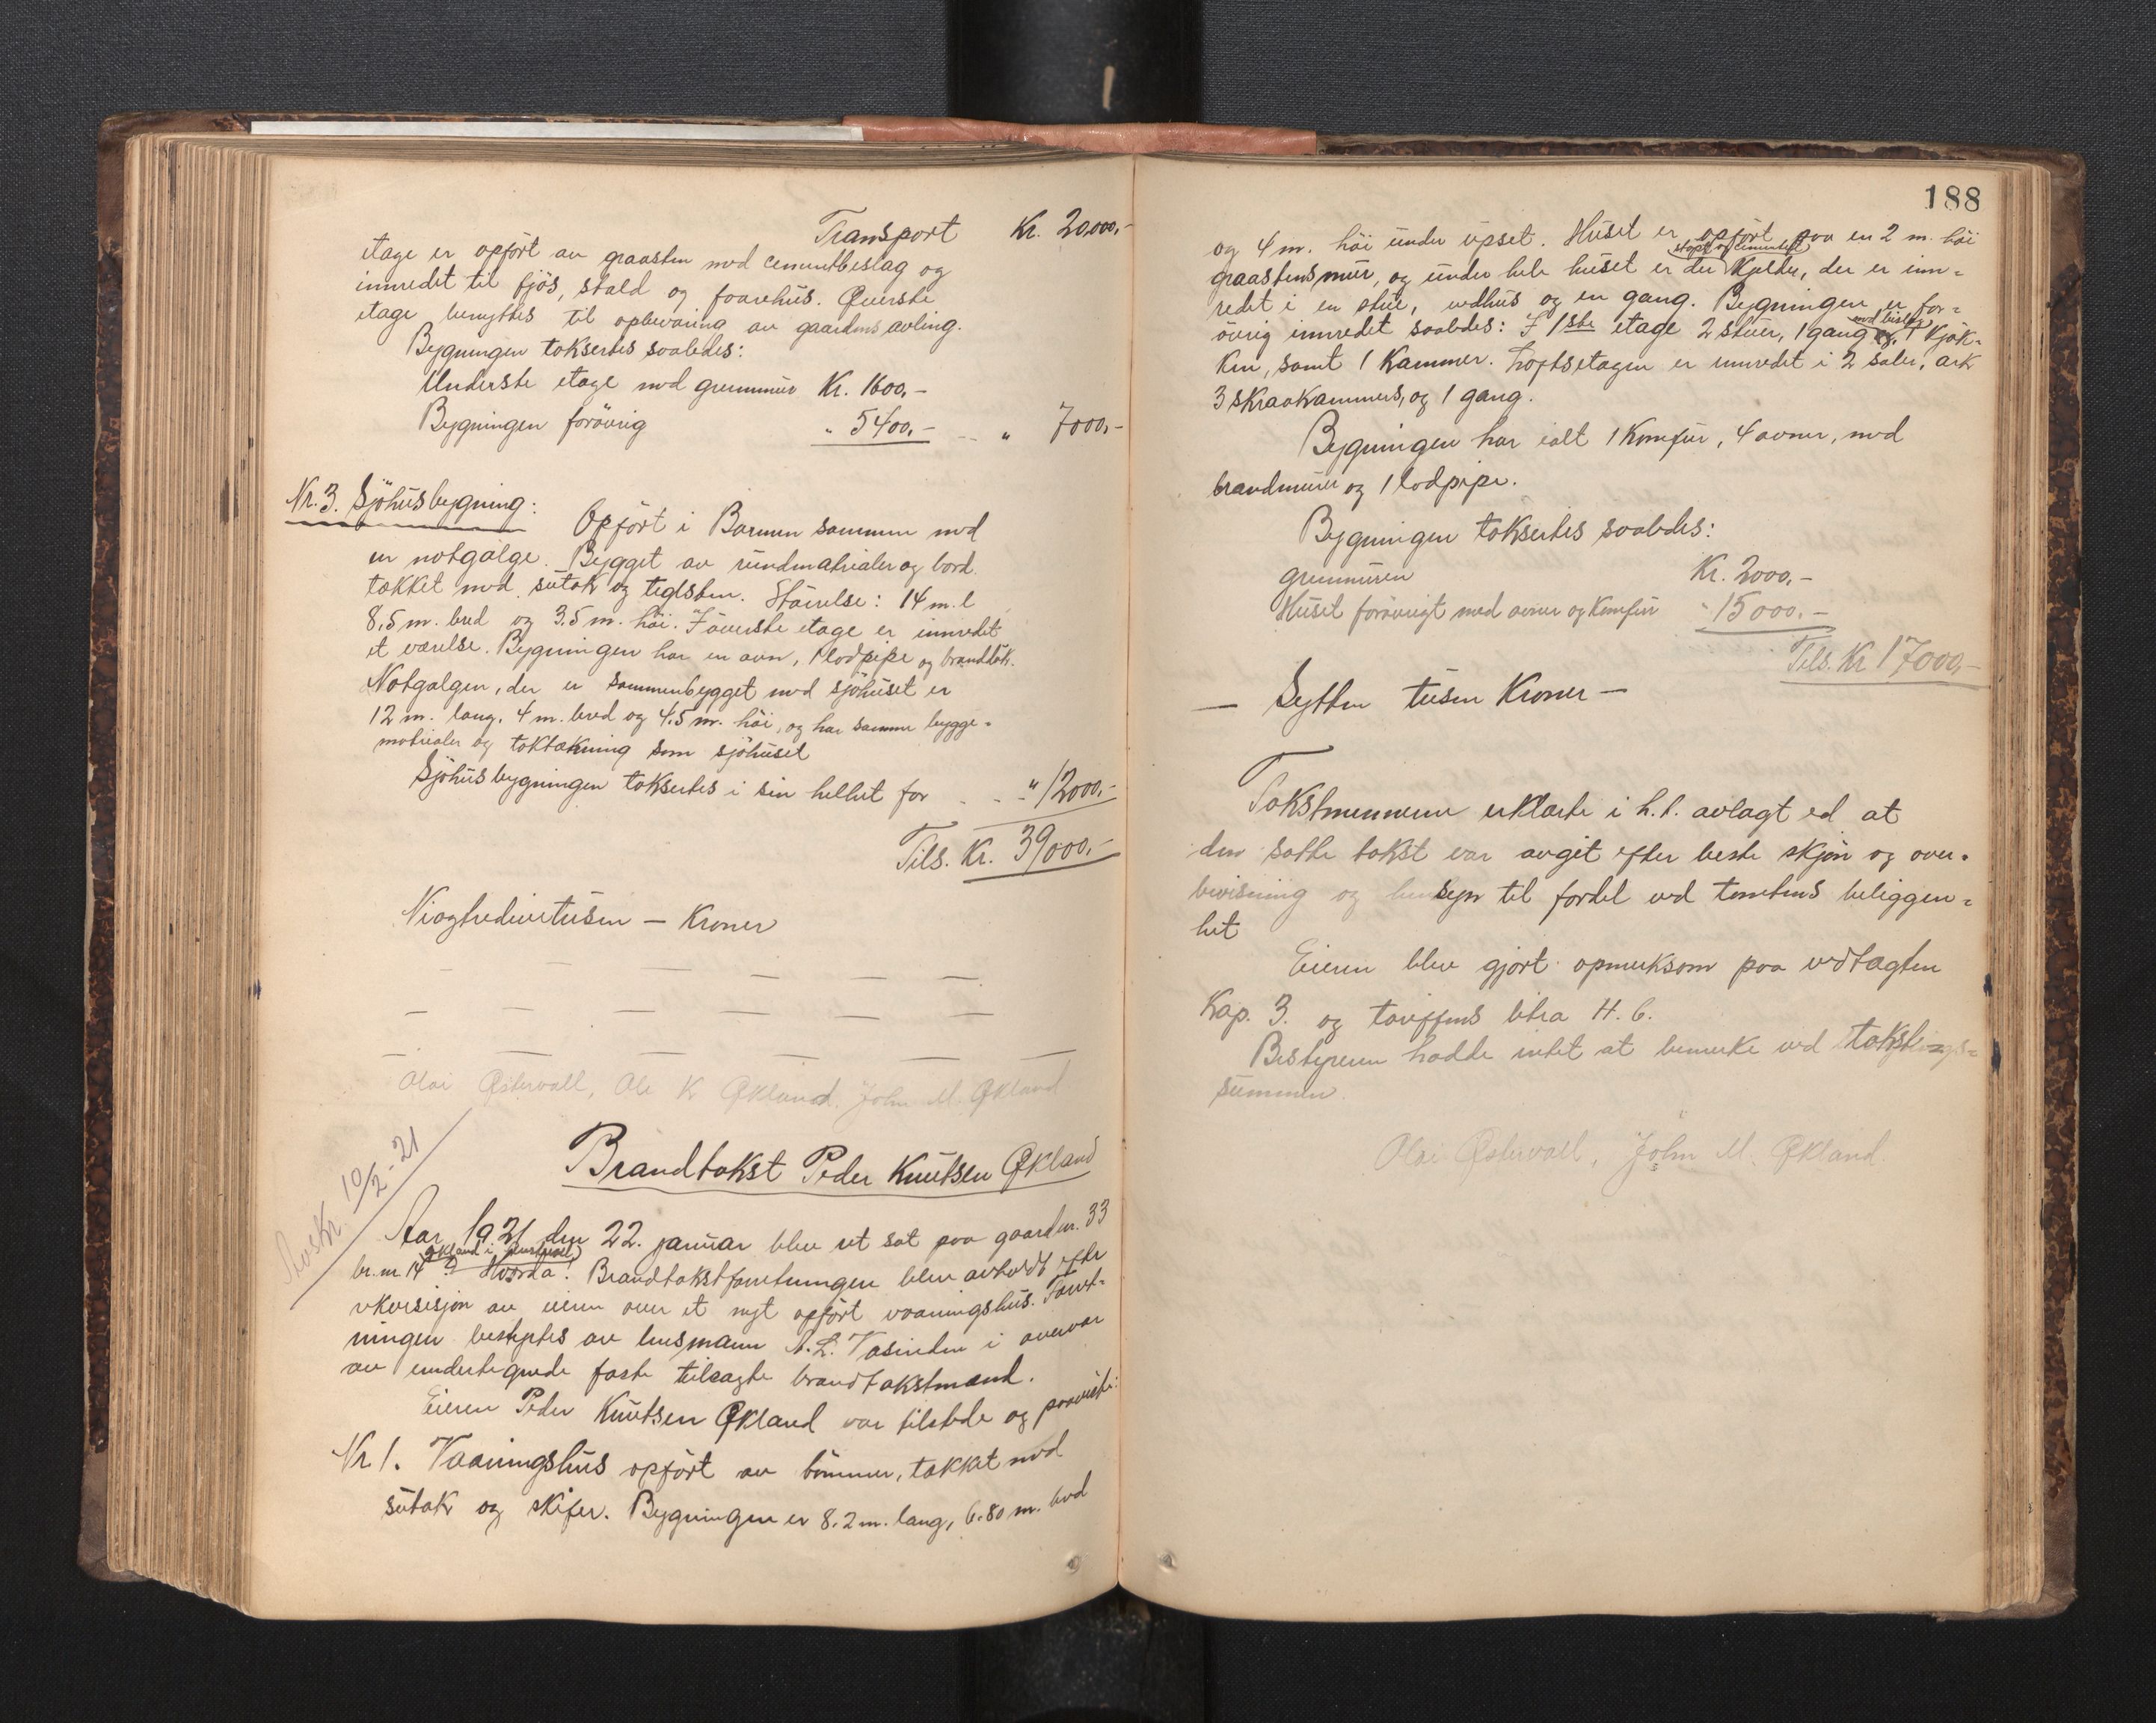 Transport Kr. 20000,-
etage er opført av graasten med cementbeslag og
innredet til fjös, stald og faarehus. Øverste
etage benyttes til opbevaring av gaardens avling.
Bygningen taksertes saaledes:
Underste etage med grunmur Kr. 1600,-
Bygningen forövrig " 5400,- -- " 7000,-
Nr. 3. Sjöhusbygning:
Opfört i Barmen sammen med
en notgalge. Bygget av rundmatrialer og bord.
takket med sutak og teglsten. Störrelse: 14 m. l
8,5 m. bred og 3,5 m. höi. I överste etage er innredet
et værelse. Bygningen har en ovn, 1 lodpipe og brandbök.
Notgalgen, der er sammenbygget med sjöhuset er
12 m. lang, 4 m. bred og 4,5 m. höi, og har samme bygge=
matrialer og taktækning som sjöhuset
Sjöhusbygningen taksertes i sin helhet for - - -" 12000,-
Tils. Kr. 39000,-
Niogtredivetusen — Kroner
Olai Østervoll, Ole K Økland. John M. Økland
Brandtakst Peder Knutsen Økland
Avskr. 10/2-21
Aar 1921 den 22. januar blev ret sat paa gaardnr. 33
økland i Austevoll
br. nr. 14 Hvorda! Brandtakstforretningen blev avholdt efter
rekvisisjon av eieren over et nyt opfört vaaningshus. Forret-
ningen bestyrtes av lensmann A. L. Vasinden i overvær
av undertegnede faste tilsagte brandtakstmænd.
Eieren Peder Knutsen Økland var tilstede og paaviste:
Nr 1. Vaaningshus opfört av tömmer, takket med
sutak og skifer. Bygningen er 8.2 m. lang, 6.80 m. bred
188
og 4 m. höi under upset. Huset er opfört paa en 2 m. höi
stöpt og cementert
graastensmur, og under hele huset er der Kjelder, der er inn=
redet i en stue, vedhus og en gang. Bygningen er for=
med bislag
övrig innredet saaledes: I 1ste etage 2 stuer, 1 gang og 1 Kjök-
ken, samt 1 Kammer. Loftsetagen er innredet i 2 saler, ark
3 skraakammers, og 1 gang.
Bygningen har ialt 1 Komfur, 4 ovner, med
brandmurer og 1 lodpipe.
Bygningen taksertes saaledes:
grunmuren Kr. 2000,-
Huset forövrigt med ovner og Komfur " 15000.-
Tils. Kr 17000,-
— Sytten tusen Kroner —
Takstmennene erklærte i h. t. avlagt ed at
den satte takst var avgit efter beste skjön og over=
bevisning og hensyn til fordel ved tomtens beliggen=
het
Eieren blev gjort opmerksom paa vedtægten
Kap. 3. og tariffens litra H. 6.
Bestyreren hadde intet at bemerke ved takstens=
summen.
Olai Østervoll, John M. Økland.